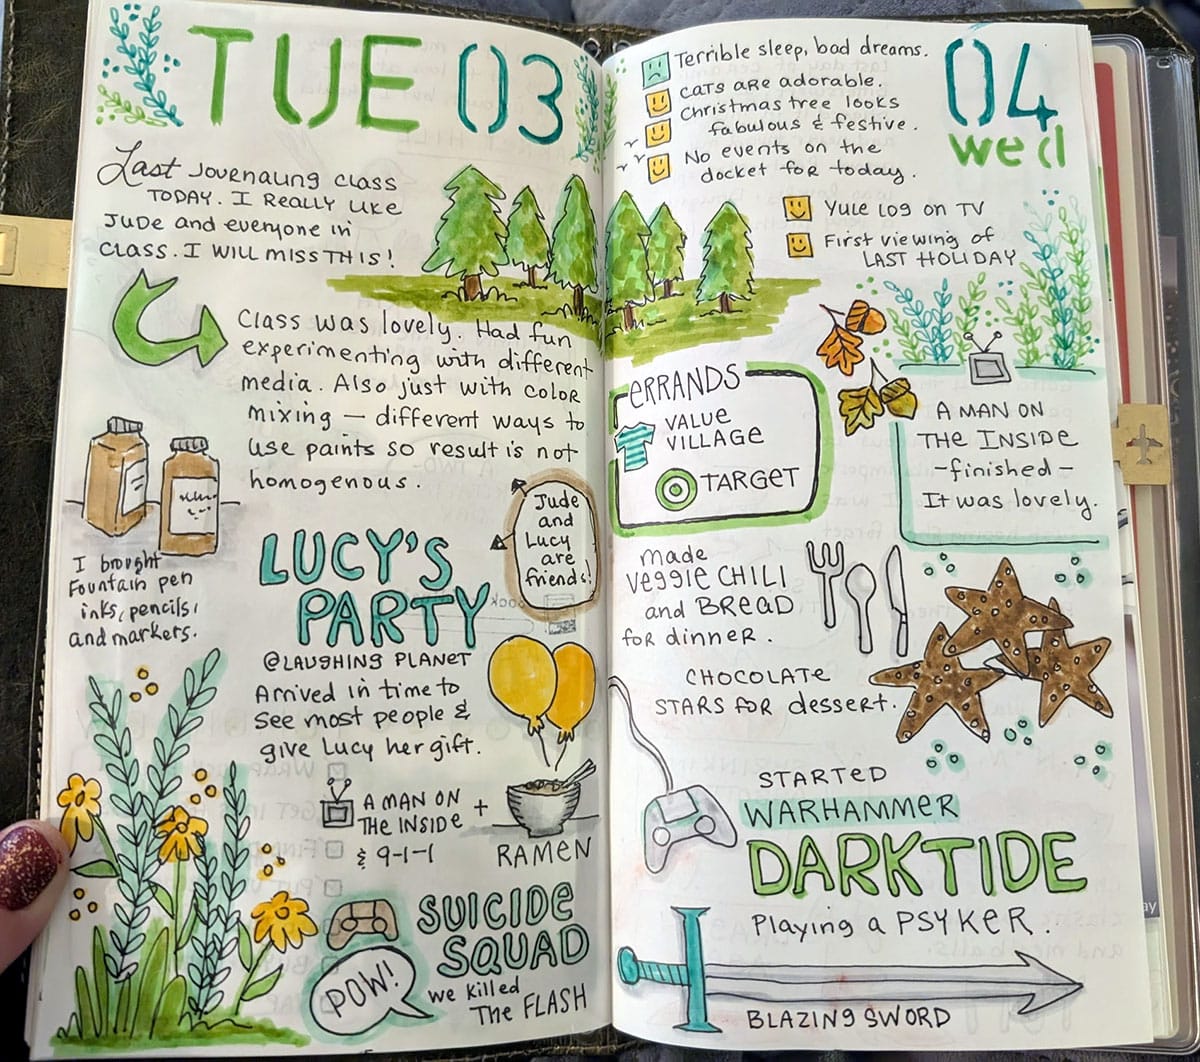 TUE 03
Last Journaling class
today. I really like
Jude and everyone in
class. I will miss this!
Class was lovely. Had fun
experimenting with different
media. Also just with color
mixing — different ways to
use paints so result is not
homogenous.
I brought
Fountain pen
inks, pencils,
and markers.
Jude
and
Lucy
are
friends!
LUCY'S
PARTY
@LAUGHING PLANET
Arrived in time to
see most people &
give Lucy her gift.
A MAN ON
THE INSIDE
& 9-1-1
+
RAMEN
SUICIDE
SQUAD
POW!
we killed
The FLASH
04
wed
Terrible sleep, bad dreams.
Cats are adorable.
Christmas tree looks
fabulous & festive.
No events on the
docket for today.
Yule log on TV
First viewing of
LAST HOLIDAY
ERRANDS
VALUE
VILLAGE
TARGET
A MAN ON
THE INSIDE
-finished-
It was lovely.
made
veggie CHILI
and BREAD
for dinner.
CHOCOLATE
STARS FOR dessert.
STARTED
WARHAMMER
DARKTIDE
Playing a PSYKER.
BLAZING SWORD